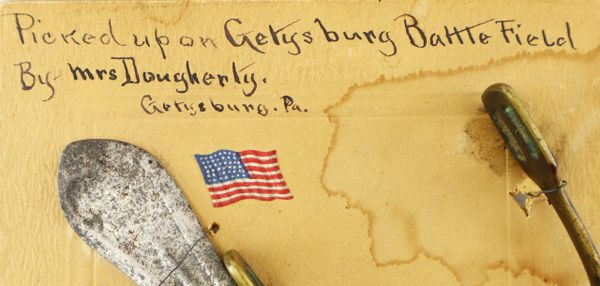 Picked up on Getysburg Battle Field
By Mrs Dougherty.
Getysburg. Pa.